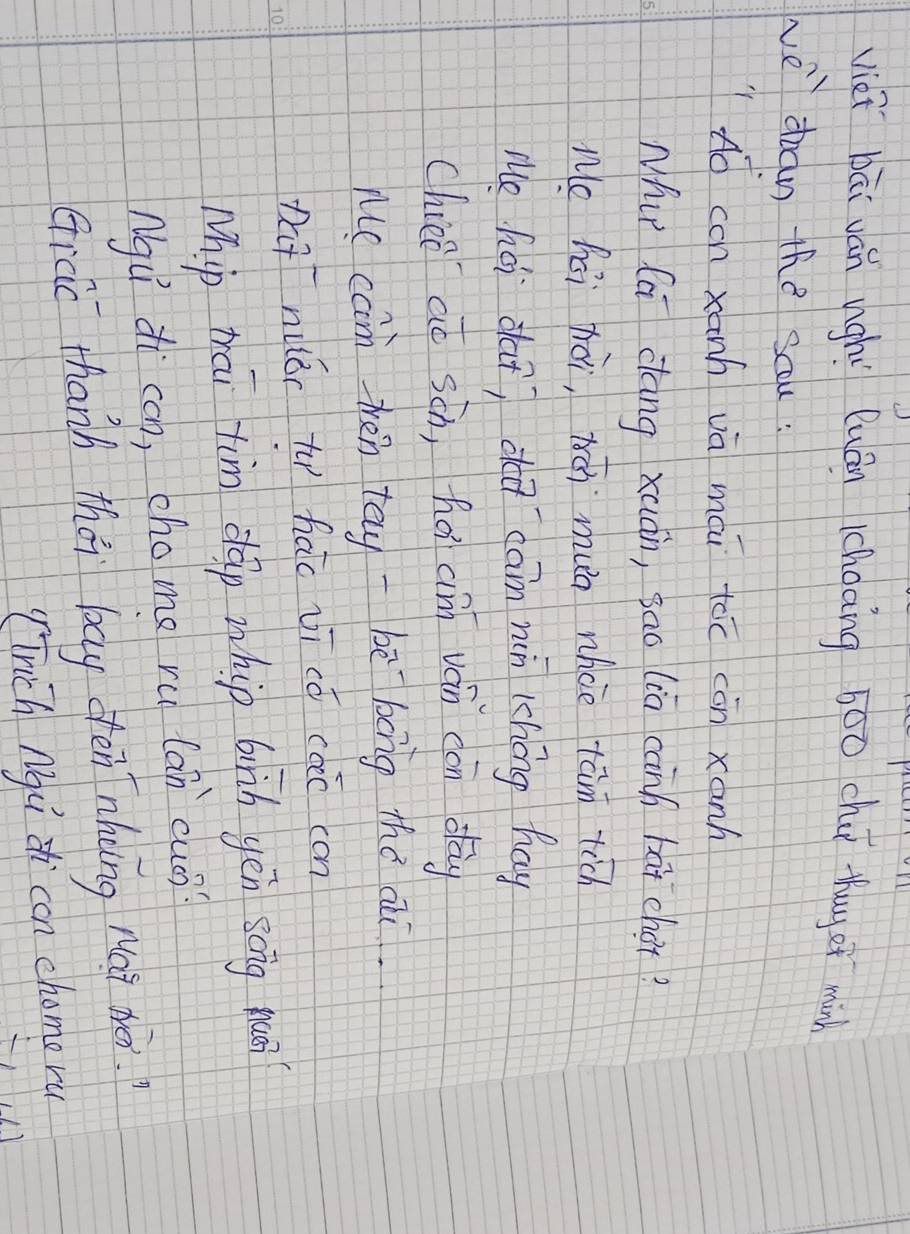 Viết bài văn nghị luận khoảng 500 chữ thuyết minh
về đoạn thơ sau:
"Áo con xanh và mái tóc còn xanh
Như lá đang xuân, sao lìa cành bất chợt?
Mẹ hỏi trời, trời mưa nhòe tăm tích
Mẹ hỏi đất, đất câm nín không hay
Chiếc áo sờn, hơi ấm vẫn còn đây
Mẹ cầm trên tay - bế bồng thơ ấu...
Đất nước tự hào vì có các con
Nhịp trái tim đập nhịp bình yên sông núi
Ngủ đi con, cho mẹ ru lần cuối
Giấc thanh thời bay đến những Mặt trời."
(Trích Ngủ đi con cho mẹ ru